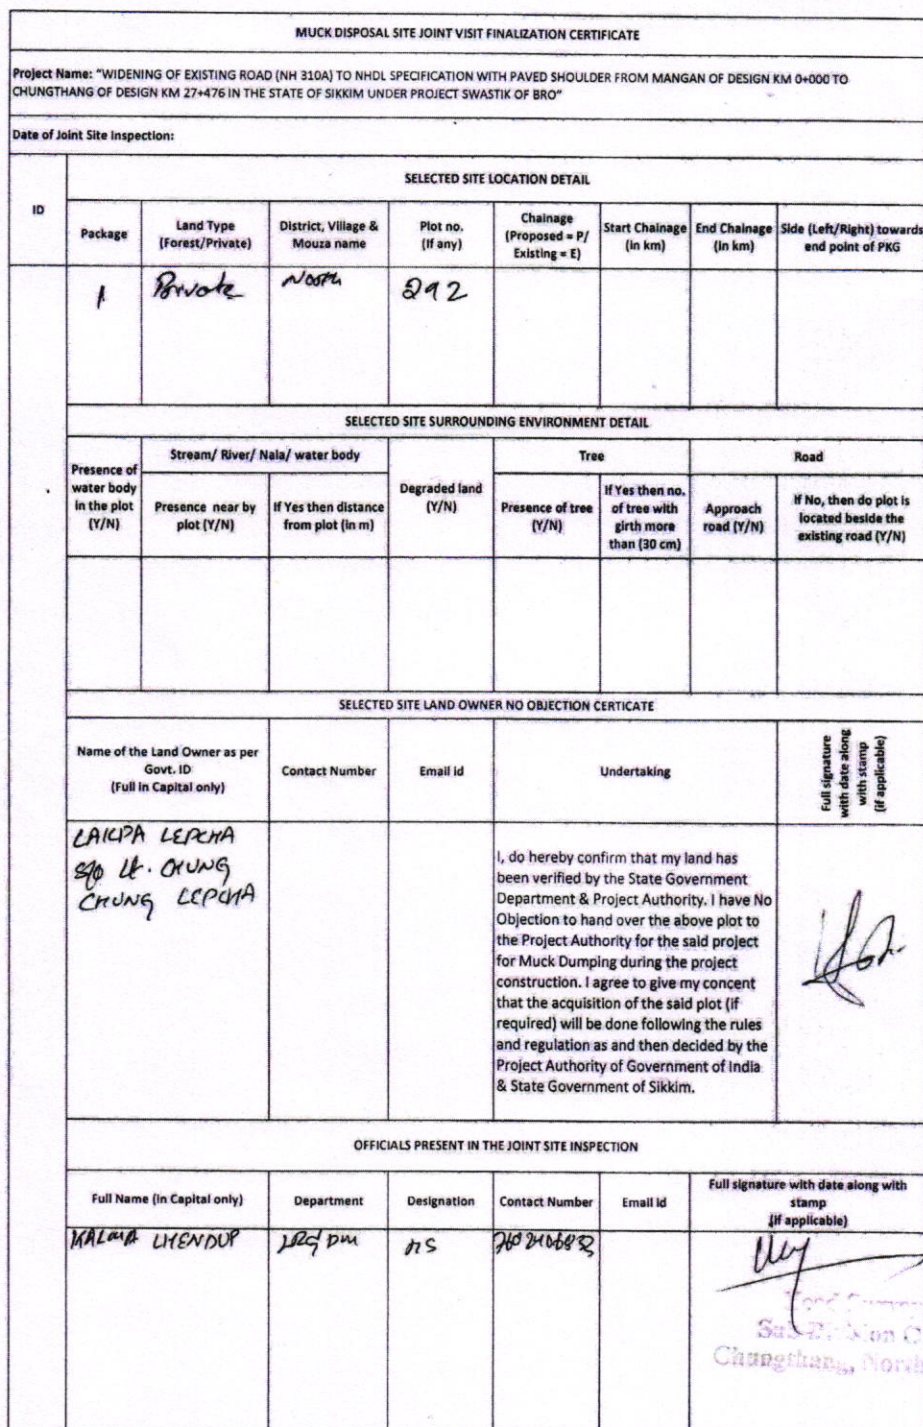 MUCK DISPOSAL SITE JOINT VISIT FINALIZATION CERTIFICATE
Project Name: "WIDENING OF EXISTING ROAD (NH 310A) TO NHDL SPECIFICATION WITH PAVED SHOULDER FROM MANGAN OF DESIGN KM 0+000 TO
CHUNGTHANG OF DESIGN KM 27+476 IN THE STATE OF SIKKIM UNDER PROJECT SWASTIK OF BRO"
Date of Joint Site Inspection:
ID
SELECTED SITE LOCATION DETAIL
Package
Land Type
(Forest/Private)
District, Village &
Mouza name
Plot no.
(If any)
Chainage
(Proposed = P/
Existing = E)
Start Chainage
(in km)
End Chainage
(in km)
Side (Left/Right) towards
end point of PKG
1
Private
North
292
SELECTED SITE SURROUNDING ENVIRONMENT DETAIL
Presence of
water body
in the plot
(Y/N)
Stream/ River/ Nala/ water body
Presence near by
plot (Y/N)
If Yes then distance
from plot (in m)
Degraded land
(Y/N)
Tree
Presence of tree
(Y/N)
If Yes then no.
of tree with
girth more
than (30 cm)
Road
Approach
road (Y/N)
If No, then do plot is
located beside the
existing road (Y/N)
SELECTED SITE LAND OWNER NO OBJECTION CERTICATE
Name of the Land Owner as per
Govt. ID
(Full in Capital only)
Contact Number
Email id
Undertaking
Full signature
with date along
with stamp
(if applicable)
LAKPA LEPCHA
S/o Lt. CHUNG
CHUNG LEPCHA
I, do hereby confirm that my land has
been verified by the State Government
Department & Project Authority. I have No
Objection to hand over the above plot to
the Project Authority for the said project
for Muck Dumping during the project
construction. I agree to give my concent
that the acquisition of the said plot (if
required) will be done following the rules
and regulation as and then decided by the
Project Authority of Government of India
& State Government of Sikkim.
OFFICIALS PRESENT IN THE JOINT SITE INSPECTION
Full Name (In Capital only)
Department
Designation
Contact Number
Email id
Full signature with date along with
stamp
(if applicable)
KALMA LHENDUP
DM
Sub Division
Chungthang, North